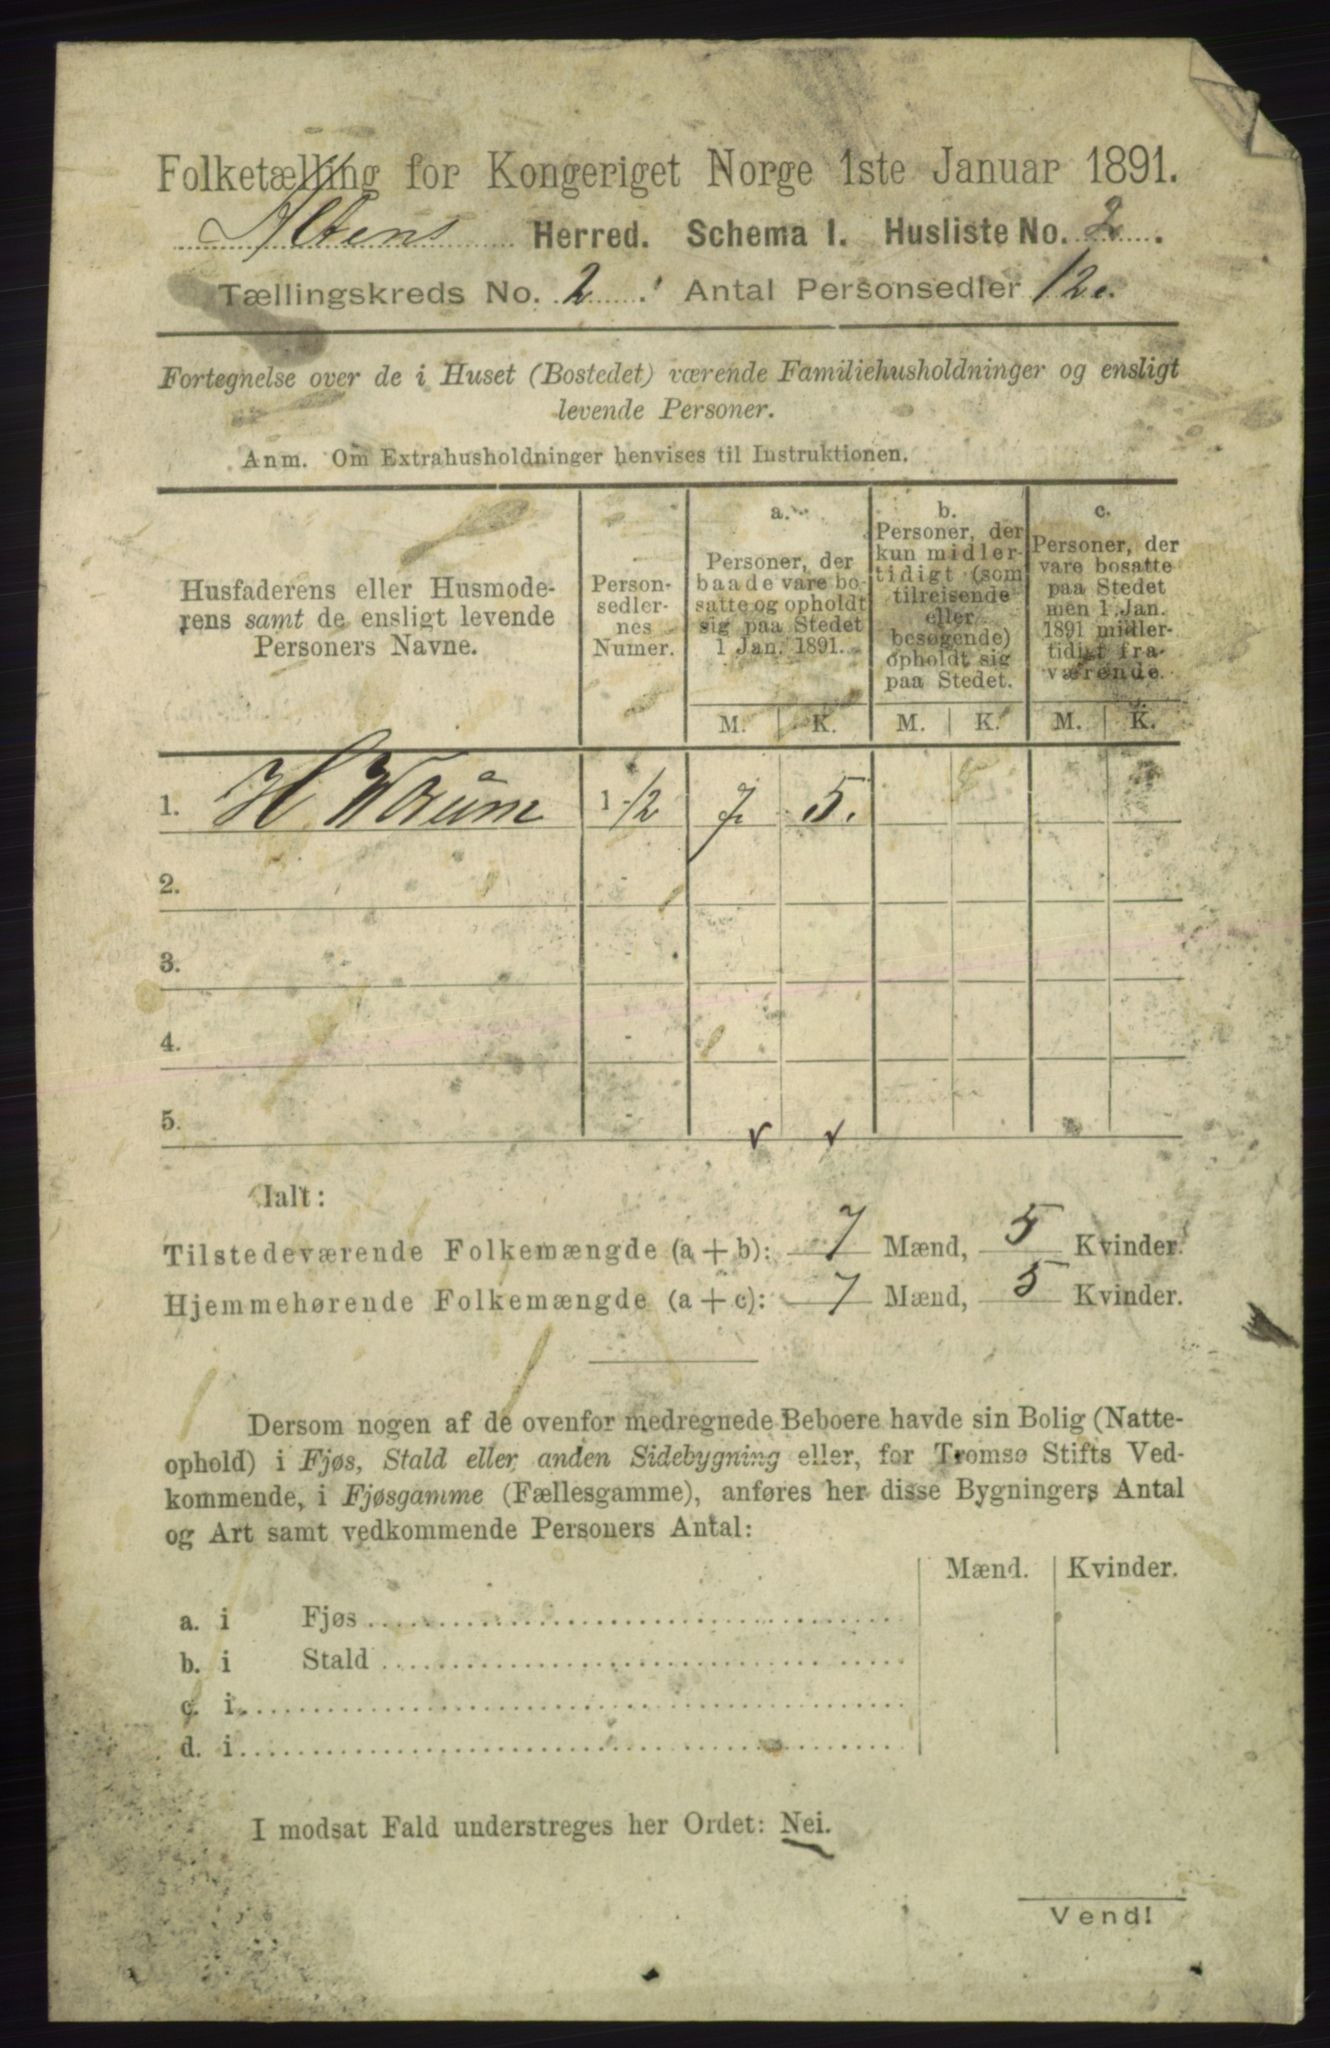 Folketælling for Kongeriget Norge 1ste Januar 1891.
Altens Herred. Schema I. Husliste No. 2.
Tællingskreds No. 2. Antal Personsedler 12.
Fortegnelse over de i Huset (Bostedet) værende Familiehusholdninger og ensligt
levende Personer.
Anm. Om Extrahusholdninger henvises til Instruktionen.
Husfaderens eller Husmode-
rens samt de ensligt levende
Personers Navne.
Person-
sedler-
nes
Numer.
a.
Personer, der
baade vare bo-
satte og opholdt
sig paa Stedet
1 Jan. 1891.
b.
Personer, der
kun midler-
tidigt (som
tilreisende
eller
besøgende)
opholdt sig
paa Stedet.
c.
Personer, der
vare bosatte
paa Stedet
men 1 Jan.
1891 midler-
tidigt fra-
værende.
M. K. M. K. M. K.
1. H 1-12 7 5.
2.
3.
4.
5.
Ialt:
Tilstedeværende Folkemængde (a + b): 7 Mænd, 5 Kvinder.
Hjemmehørende Folkemængde (a + c): 7 Mænd, 5 Kvinder.
Dersom nogen af de ovenfor medregnede Beboere havde sin Bolig (Natte-
ophold) i Fjøs, Stald eller anden Sidebygning eller, for Tromsø Stifts Ved-
kommende, i Fjøsgamme (Fællesgamme), anføres her disse Bygningers Antal
og Art samt vedkommende Personers Antal:
Mænd. Kvinder.
a. i Fjøs
b. i Stald
c. i
d. i
I modsat Fald understreges her Ordet: Nei.
Vend!